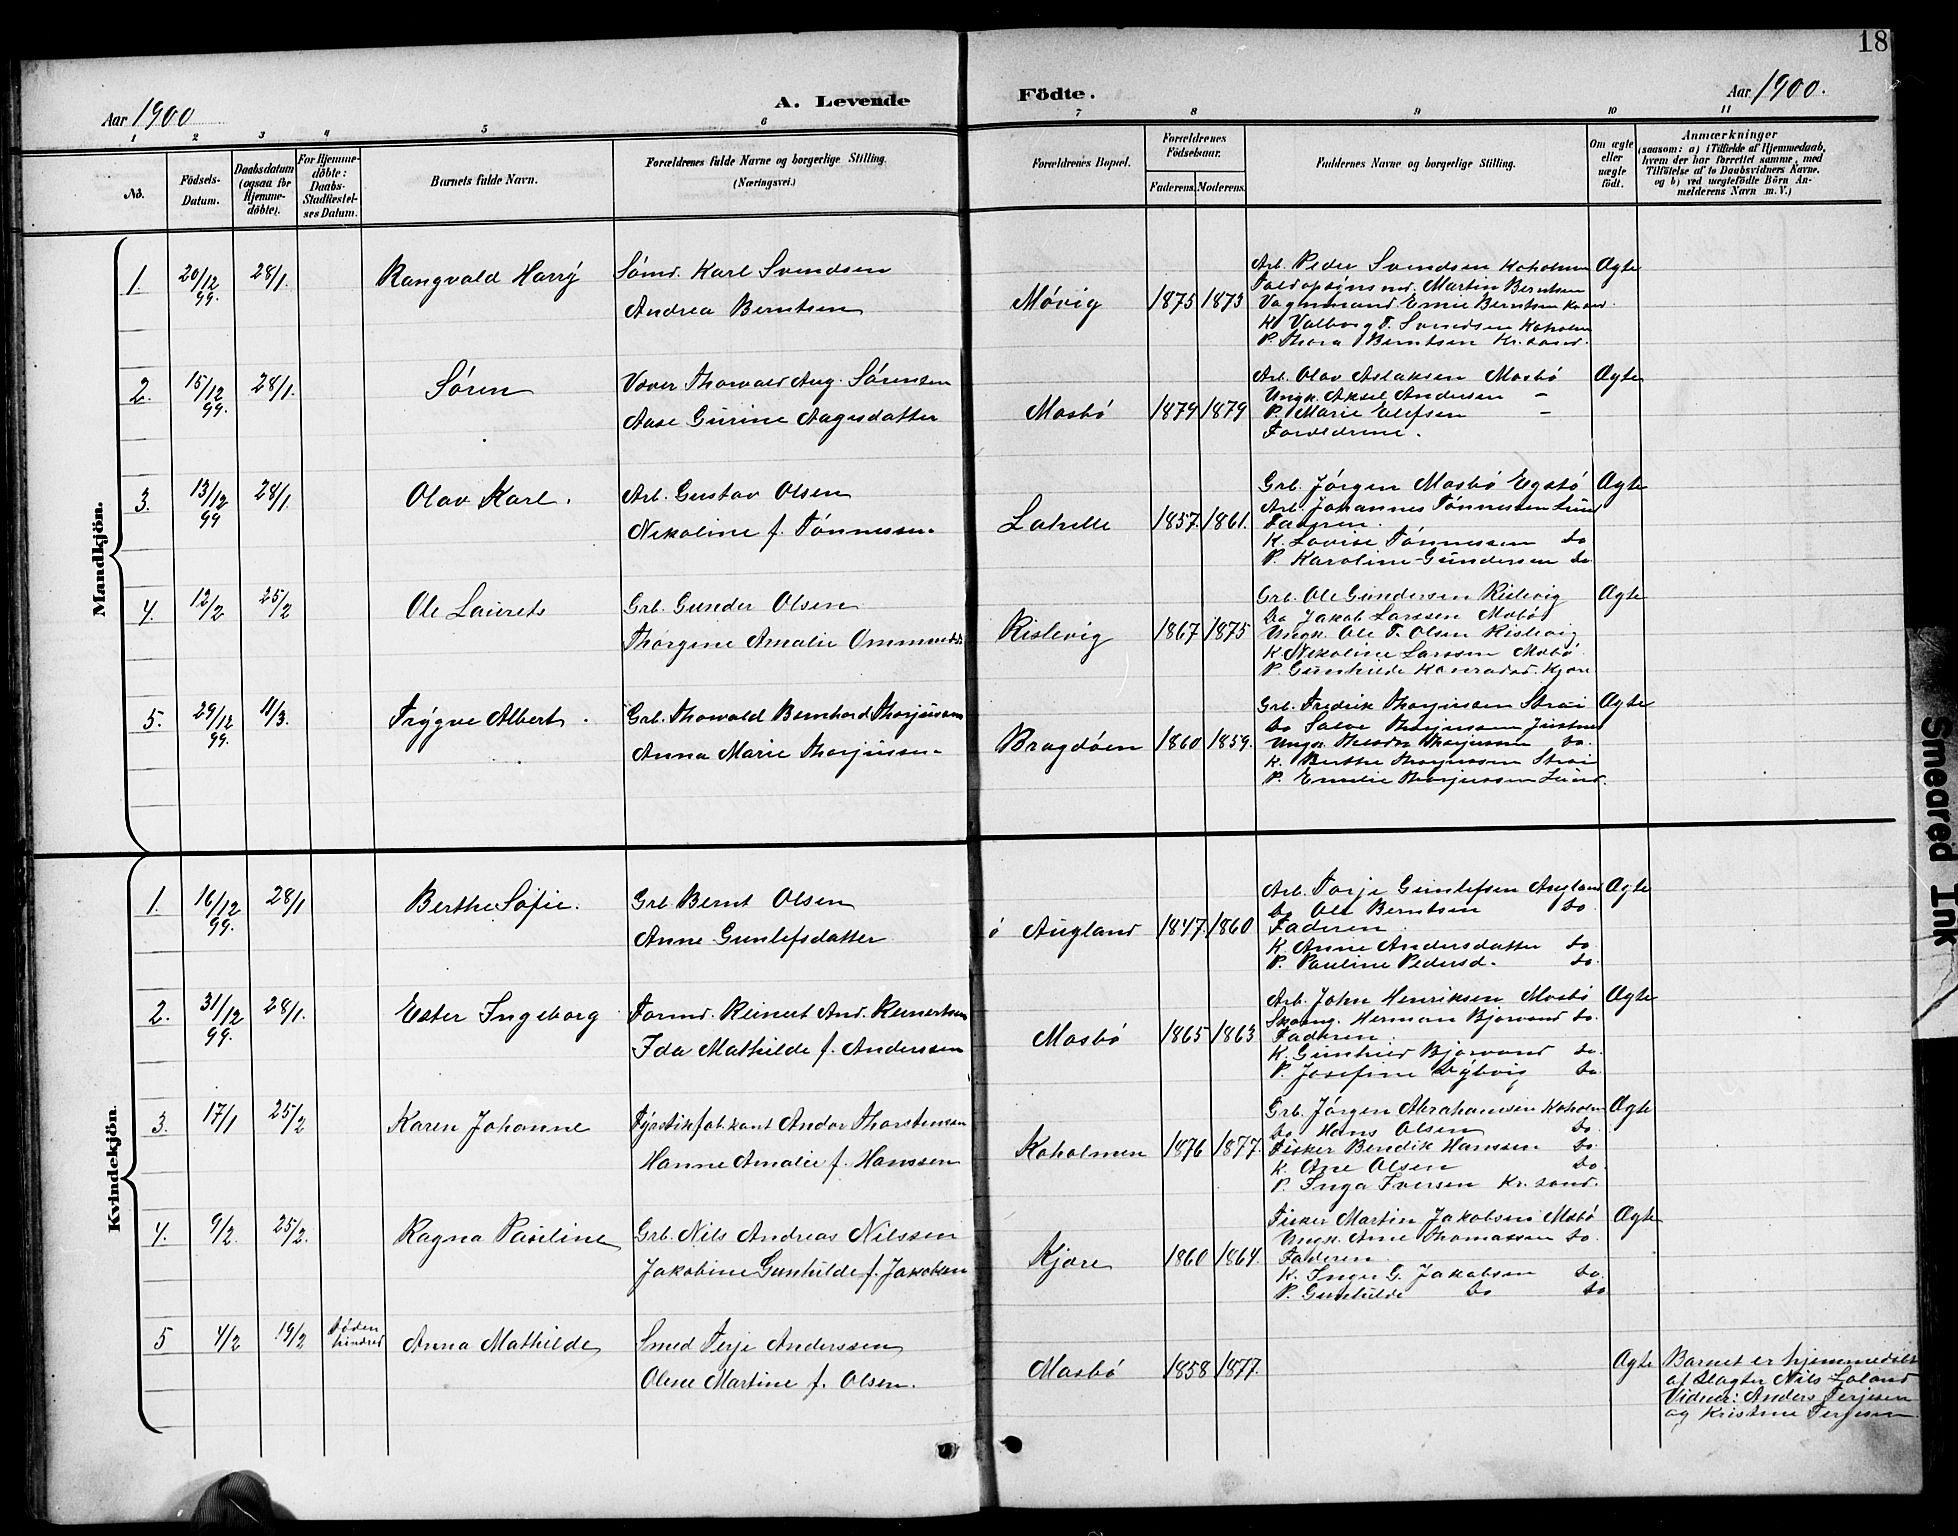 18
Aar 1900
A. Levende Födte.
Aar 1900.
1 2 3 4 5 6 7 8 9 10 11
No.
Födsels-
Datum.
Daabsdatum
(ogsaa for
Hjemme-
döbte).
For Hjemme-
döbte:
Daabs-
Stadfæstel-
ses Datum.
Barnets fulde Navn.
Forældrenes fulde Navne og borgerlige Stilling.
(Næringsvei.)
Forældrenes Bopæl.
Forældrenes
Födselsaar.
Faderens. Moderens.
Faddernes Navne og borgerlige Stilling.
Om ægte
eller
uægte
födt.
Anmærkninger
(saasom: a) i Tilfælde af Hjemmedaab,
hvem der har forrettet samme, med
Tilföielse af to Daabsvidners Navne.
og b) ved uægtefödte Börn An-
melderens Navn m. V.)
Mandkjön.
1. 20/12 99. 28/1. Rangvald Harry
Sömd. Karl Svendsen
Andrea Berntsen
Møvig 1875 1873
Arb. Peder Svendsen Koholmen
Martin Berntsen
Vognmand Emie Berntsen Kr.sand.
K. Valborg T. Svendsen Koholm
P. Thora Berntsen Kr. sand.
Ægte
2. 15/12 99. 28/1. Søren
Væver Thorvald Aug. Sørensen
Aase Gurine Aagesdatter
Mosbø 1879 1879
Arb. Olav Aslaksen Mosbø
Ungk. Aksel Andersen -
P. Marie Olefsen -
Forældrene.
Ægte
3. 13/12 99 28/1. Olav Karl.
Arb. Gustav Olsen
Nikoline f. Tønnessen
Lahelle 1857. 1861.
Grb. Jørgen Mosbø Egstø
Arb. Johannes Tønnessen Lund
Faderen.
K. Lovise Tønnessen do
P. Karoline Gundersen do
Ægte
4. 12/2 25/2 Ole Laurets
Grb. Gunder Olsen
Thorgine Amalie
Rislevig 1867 1875
Grb. Ole Gundersen Rislevig
Do Jakob Larssen Mosbø
Ungk. Ole T. Olsen Rislevig
K. Nikoline Larssen Mosbø
P. Gunhilde Konradsd. Kjøre
Ægte
5. 29/12 99. 11/3. Trygve Albert.
Grb. Thorvald Bernhard Thorjussen
Anna Marie Thorjussen
Bragdøen 1860 1859.
Grb. Fredrik Thorjussen Strai
Do Salve Thorjussen Justnes
Ungk. Theodor Thorjussen do.
K. Berthe Thorjussen Strai
P. Emilie Thorjussen Lund.
Ægte
Kvindekjön.
1. 16/12 99. 28/1 Berthe Sofie.
Grb. Bernt Olsen
Anne Gunlefsdatter
ø Augland 1847. 1860
Arb. Torje Gunlefsen Augland
Do Ole Berntsen do.
Faderen.
K. Anne Andersdatter do.
P. Pauline Pedersd. do.
Ægte
2. 31/12 99. 28/1. Ester Ingeborg
Formd. Reinert And. Reinertsen
Ida Mathilde f. Anderssen
Mosbø 1865 1863
Arb. John Henriksen Mosbø
Herman Bjorvand do.
Faderen.
K. Gunhild Bjorvand do.
P. Josefine Dybvig do.
Ægte
3. 17/1 25/2 Karen Johanne
Fyrstikfabkant Andor Thorstensen
Hanne Amalie f. Hanssen
Koholmen 1876 1877.
Grb. Jørgen Abrahamsen Koholm
Do Hans Olsen do.
Fisker Bendik Hanssen do.
K. Ane Olsen do.
P. Inga Iversen Kr. sand.
Ægte
4. 9/2. 25/2. Ragna Pauline
Grb. Nils Andreas Nilssen
Jakobine Gunhilde f. Jakobsen
Kjøre 1860 1864.
Fisker Martin Jakobsen Mosbø
Ungk. Arne Thomassen do.
Faderen
K. Inger G. Jakobsen do.
P. Gunhilde do do
Ægte
5 4/2 19/2 Døden hindred Anna Mathilde
Smed Terje Anderssen
Olene Martine f. Olsen.
Mosbø 1858 1877.
Ægte
Barnet er hjemmedøbt
af Slagter Nils Loland
Vidner: Anders Terjesen
og Kristine Terjesen
Smeared Ink